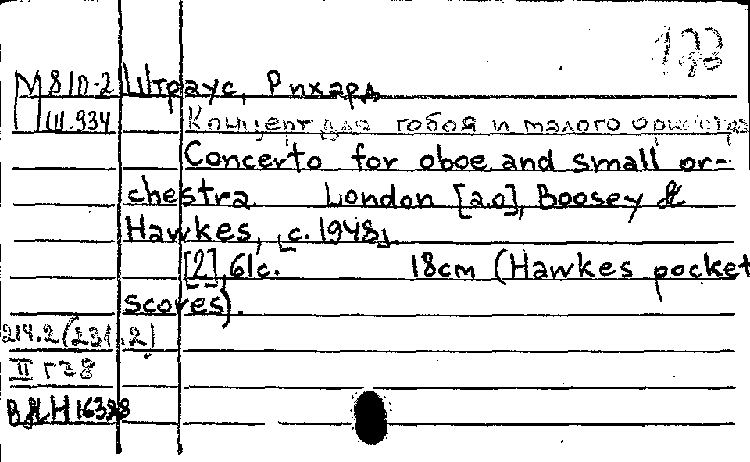 М810-2 Штраус, Рихард
Ш.934 Концерт для гобоя и малого оркестра
Concerto for oboe and small or-
chestra. London [a.o], Boosey &
Hawkes, [c. 1948].
[2], 61c. 18cm (Hawkes pocket
scores).
214.2 (231.2)
II г 28